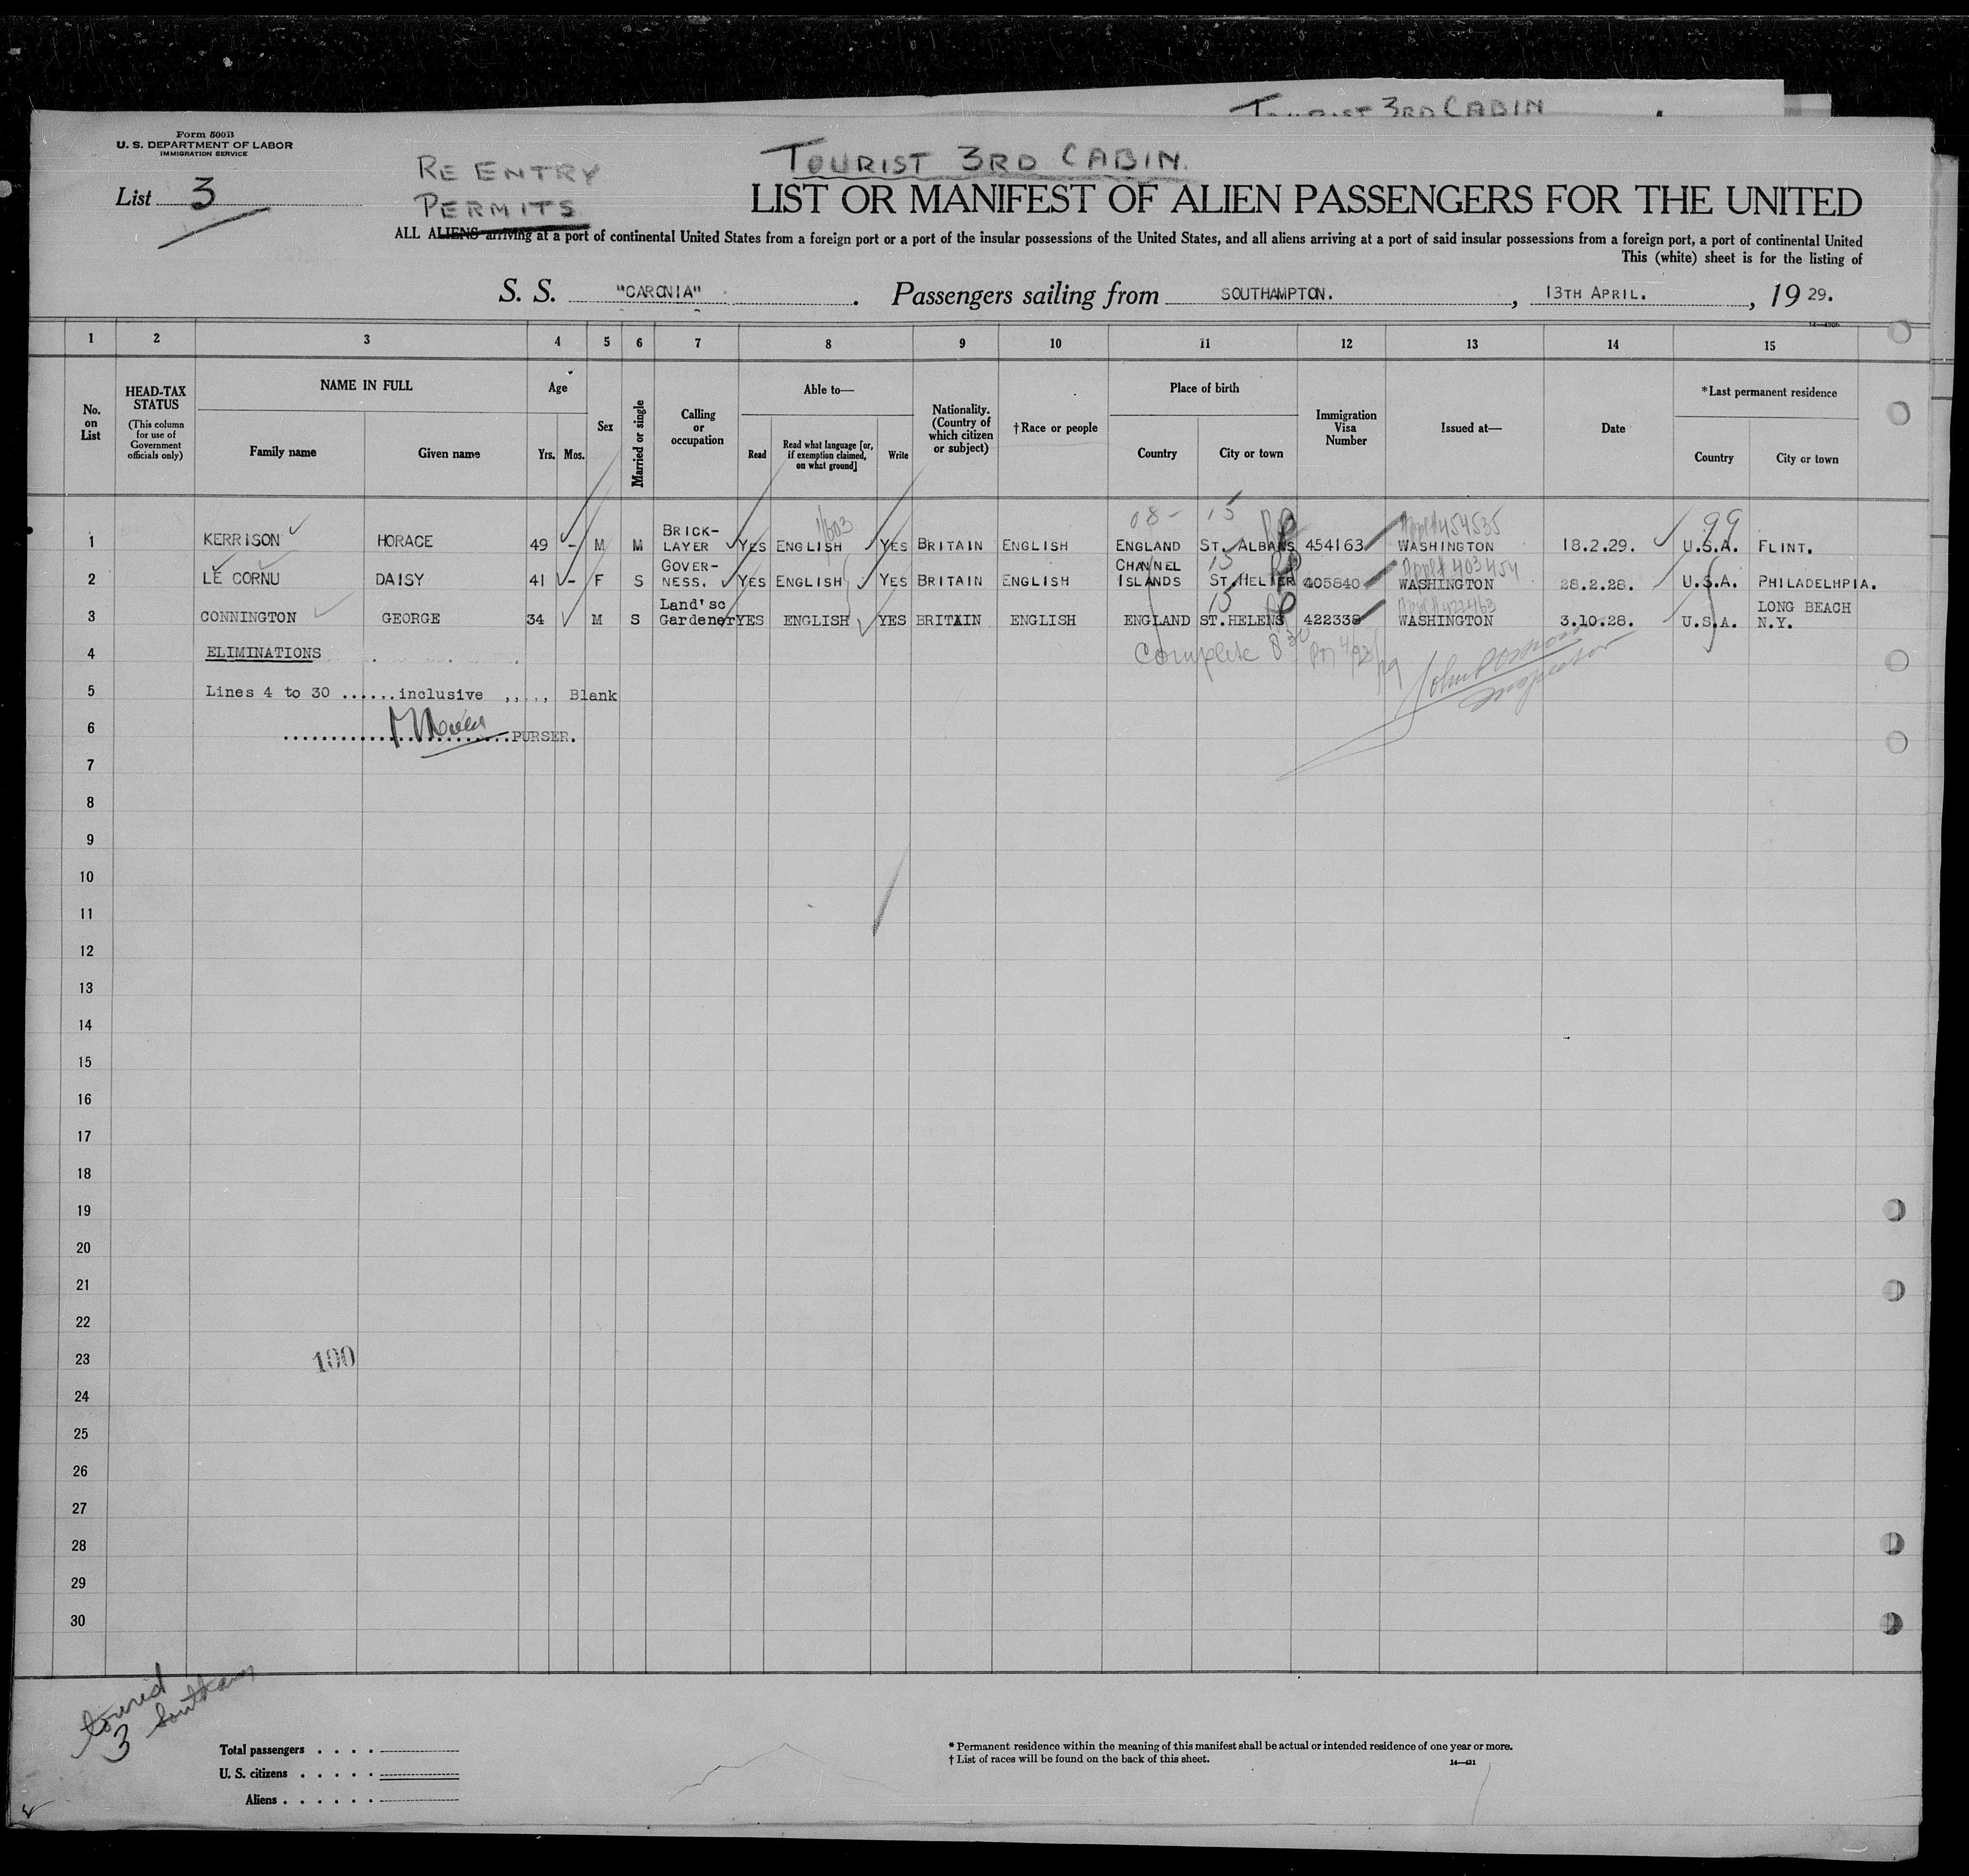 TOURIST 3RD CABIN
Form 500B
U. S. DEPARTMENT OF LABOR
IMMIGRATION SERVICE
List 3
RE ENTRY
PERMITS
TOURIST 3RD CABIN.
LIST OR MANIFEST OF ALIEN PASSENGERS FOR THE UNITED
ALL ALIENS arriving at a port of continental United States from a foreign port or a port of the insular possessions of the United States, and all aliens arriving at a port of said insular possessions from a foreign port, a port of continental United
This (white) sheet is for the listing of
S. S. "CARONIA" . Passengers sailing from SOUTHAMPTON. , 13TH APRIL. , 19 29.
1 2 3 4 5 6 7 8 9 10 11 12 13 14 15
No. on List
HEAD-TAX STATUS
(This column for use of Government officials only)
NAME IN FULL
Family name
Given name
Age
Yrs.
Mos.
Sex
Married or single
Calling or occupation
Able to—
Read
Read what language [or, if exemption claimed, on what ground]
Write
Nationality. (Country of which citizen or subject)
†Race or people
Place of birth
Country
City or town
Immigration Visa Number
Issued at—
Date
*Last permanent residence
Country
City or town
08- 15 Appl# 454535 99
1 KERRISON HORACE 49 - M M BRICK-LAYER YES ENGLISH YES BRITAIN ENGLISH ENGLAND ST. ALBANS 454163 WASHINGTON 18.2.29. U.S.A. FLINT.
15 Appl# 403454
2 LE CORNU DAISY 41 - F S GOVER-NESS. YES ENGLISH YES BRITAIN ENGLISH CHANNEL ISLANDS ST.HELIER 405840 WASHINGTON 28.2.28. U.S.A. PHILADELHPIA.
15 Appl# 422463
3 CONNINGTON GEORGE 34 M S Land'sc Gardener YES ENGLISH YES BRITAIN ENGLISH ENGLAND ST.HELENS 422338 WASHINGTON 3.10.28. U.S.A. LONG BEACH N.Y.
4 ELIMINATIONS
Complete
Inspector
5 Lines 4 to 30 ......inclusive ,,,,, Blank
6 ..........................PURSER.
7
8
9
10
11
12
13
14
15
16
17
18
19
20
21
22
23
100
24
25
26
27
28
29
30
3
Total passengers . . . .
U. S. citizens . . . . .
Aliens . . . . . .
* Permanent residence within the meaning of this manifest shall be actual or intended residence of one year or more.
† List of races will be found on the back of this sheet.